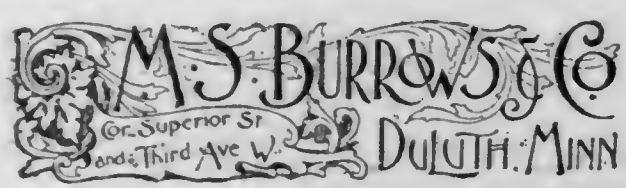 M. S. BURROWS & CO
Cor. Superior St
and Third Ave W.
DULUTH. MINN